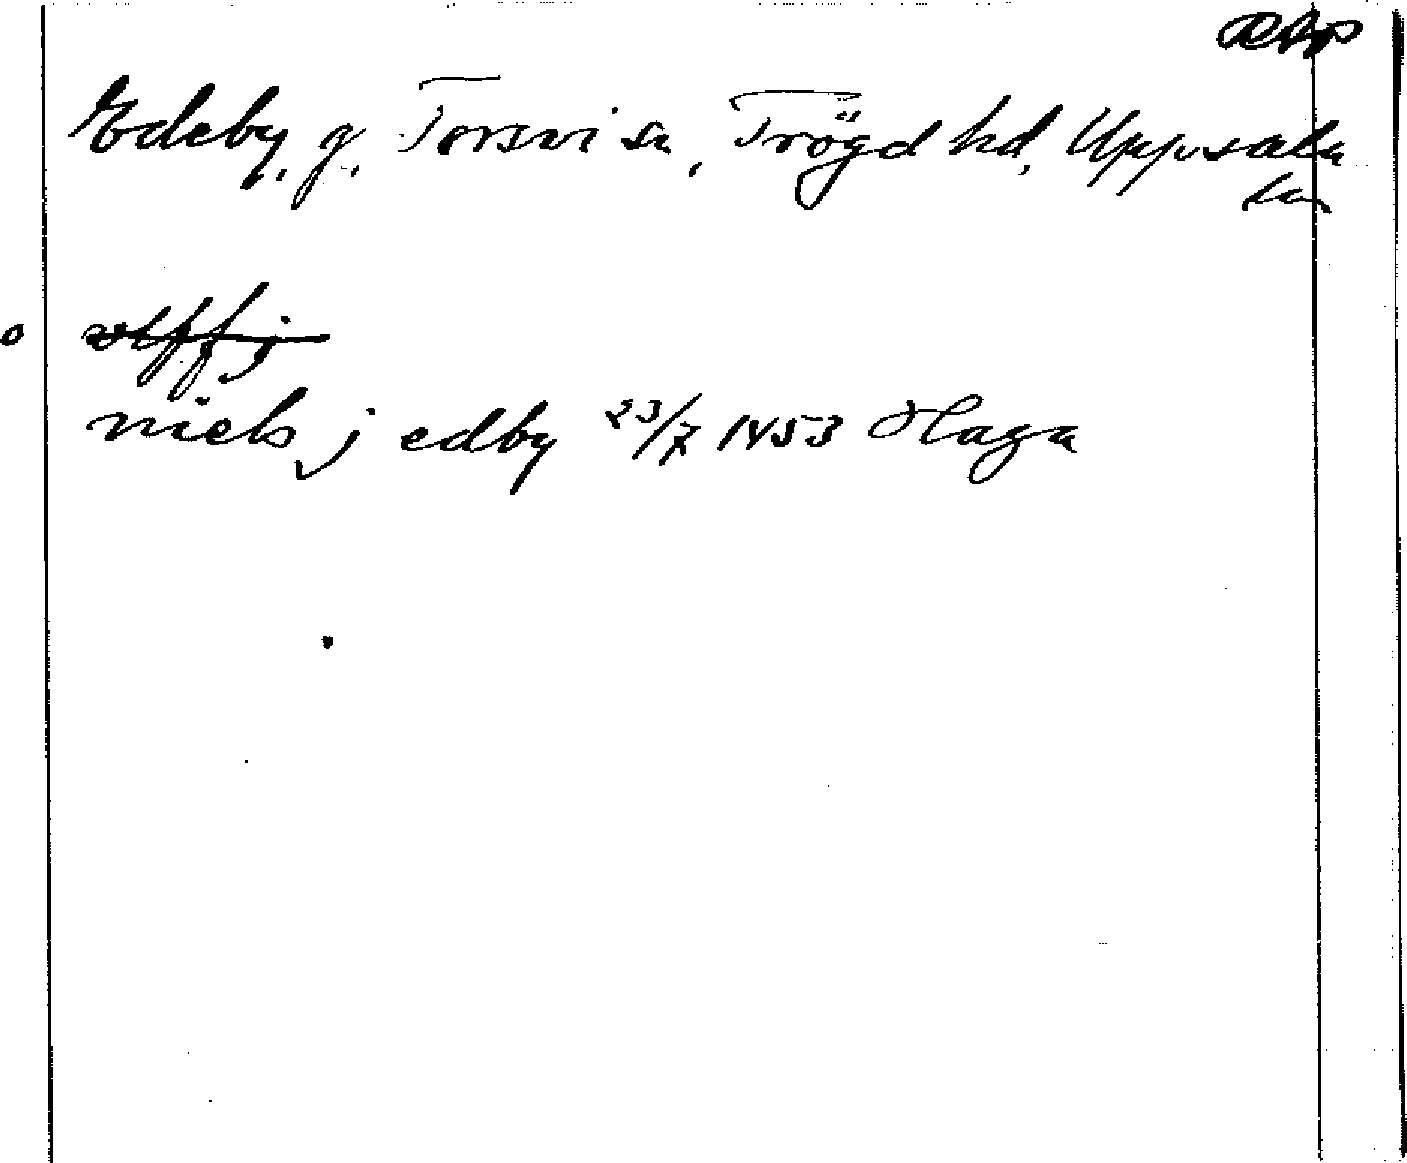 Edeby, g. Torsvi sn, Trögd hd, Uppsala
län
niels j edby 23/7 1453 Haga